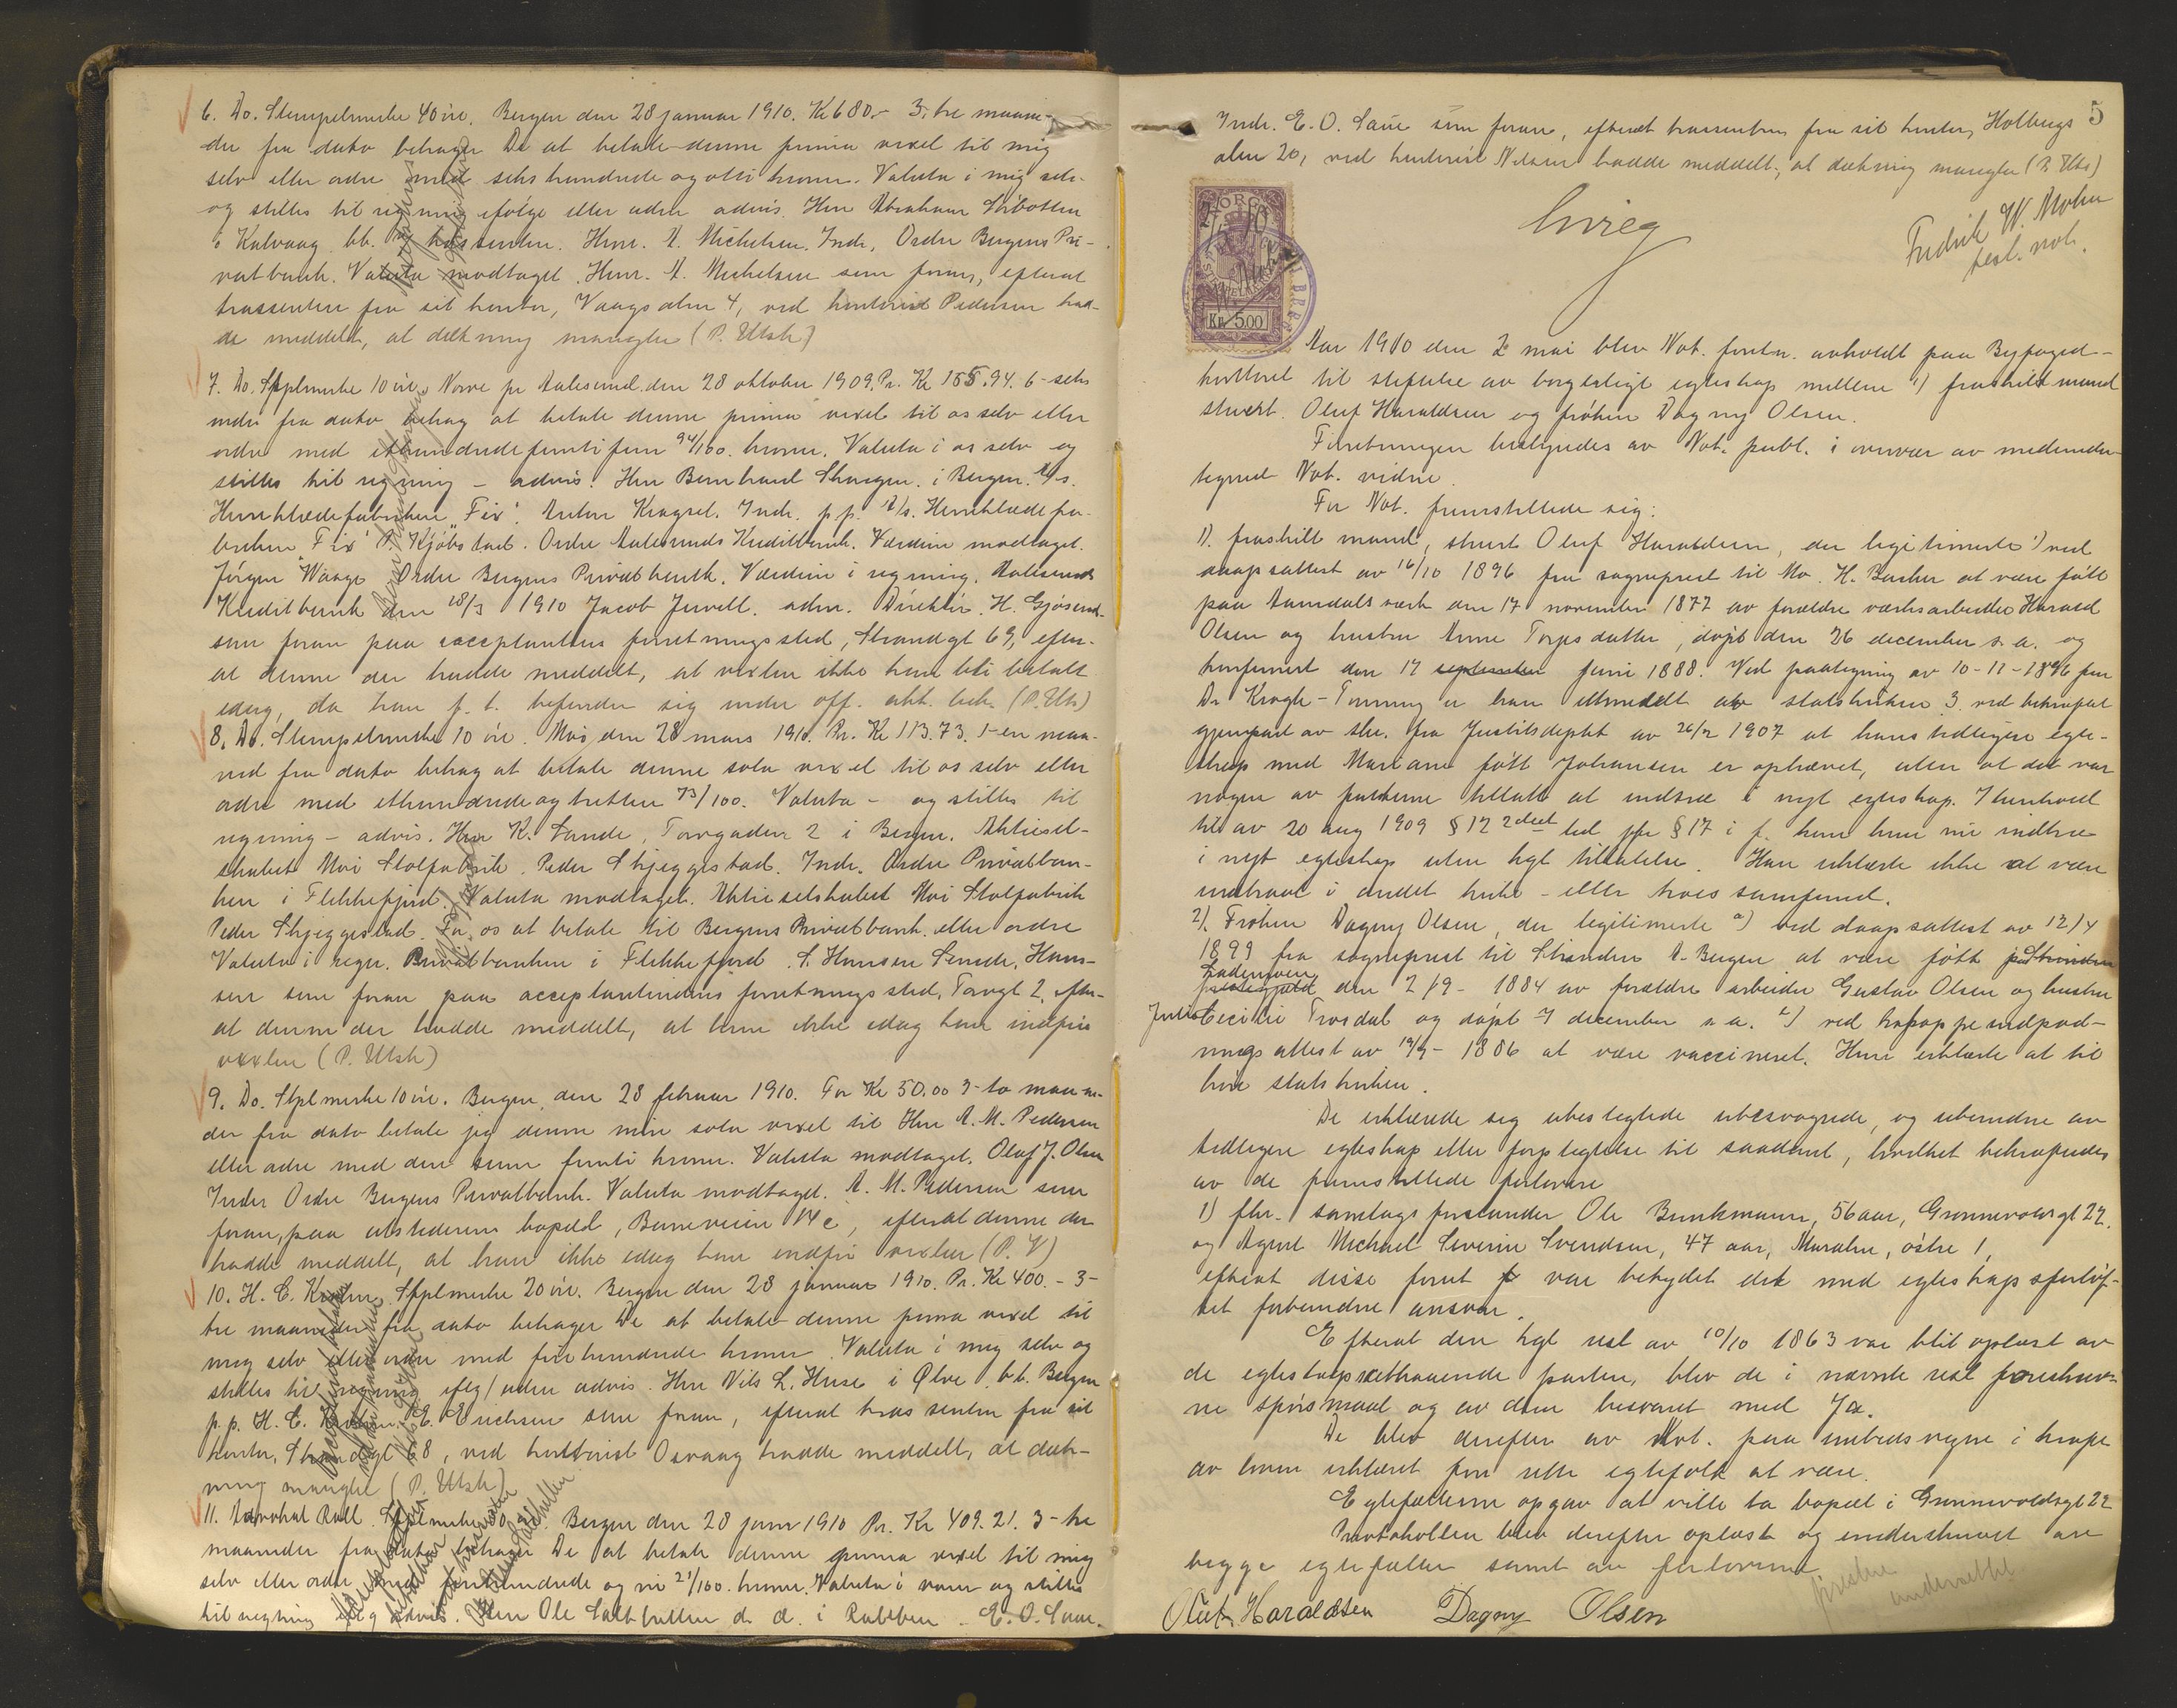 6. Do. Stempelmerke 40 øre. Bergen den 28 januar 1910. Kr 680.- 3. tre maane-
der fra dato behager De at betale denne prima vexel til mig
selv eller ordre med sekshundrede og otti kroner. Valuta i mig selv
og stilles til regning ifølge eller uden advis. Herr Abraham
i Kalvaag bb. Herr. A. Michelsen. Indr. Ordre Bergens Pri-
vatbank. Valuta modtaget. Herr. A. Michelsen som foran, efterat
trassenten fra sit kontor, Vaagsalm 4, ved kontorist Pedersen had-
de meddelt, at dækning mangler (P. Utsk)
7. Do. Stplmerke 10 øre. Norve pr Aalesund. den 28 oktober 1909. Pr. Kr 155.94. 6-seks
mdr fra dato behag at betale denne prima vexel til os selv eller
ordre med ethundredefemtifem 94/100. kroner. Valuta i os selv og
stilles til regning - advis. Herr Bernhard i Bergen. A/s.
Herreklædefabriken "Fix". Anton Indr. p.p. A/s. Herreklædefa-
briken "Fix" P. Kjøbstad. Ordre Aalesunds Kreditbank. Værdien modtaget.
Jørgen Waage Ordre Bergens Privatbank. Værdien i regning. Aalesunds
Kreditbank den 18/3 1910 Jacob Jervell. adm. Direktør. H. Gjøsund.
som foran paa acceptantens forretningssted, Strandgt 69, efter-
at denne der hadde meddelt, at vexlen ikke kan bli betalt
idag, da han p. t. befinder sig under off. akk. beh. (P. Uts)
8. Do. Stempelmerke 10 øre. Moi, den 28 mars 1910. Pr. Kr 113.73. 1-en maa-
ned fra dato behag at betale denne sola vexel til os selv eller
ordre med ethundredeogtretten 73/100. Valuta - og stilles til
regning - advis. Herr K. Sande, Torvgaden 2 i Bergen. Aktiesel-
skabet Moi Stolfabrik. Peder Skjeggestad. Indr. Ordre Privatban-
ken i Flekkefjord. Valuta modtaget. Aktieselskabet Moi Stolfabrik
Peder Skjeggestad. For os at betale til Bergens Privatbank eller ordre
Valuta i regn. Privatbanken i Flekkefjord. S. Hansen
som foran paa acceptantens forretningssted, Torvgt 2, efter-
at denne der hadde meddelt, at han ikke idag kan indfri
vexlen (P. Utsk)
9. Do. Stplmerke 10 øre. Bergen, den 28 februar 1910. For Kr 50.00 to maane-
der fra dato betale jeg denne min sola vexel til Herr A. M. Pedersen
eller ordre med den sum femti kroner. Valuta modtaget. Olaf J. Olsen
Indr Ordre Bergens Privatbank. Valuta modtaget. A. M. Pedersen som
foran, paa utstederens bopæl, 14 c, efterat denne der
hadde meddelt, at han ikke idag kan indfri vexlen (P. V)
10. H. C. Stplmerke 20 øre. Bergen den 28 januar 1910. Pr. Kr 400. - 3-
tre maaneder fra dato behager De at betale denne prima vexel til
mig selv eller ordre med firehundrede kroner. Valuta i mig selv og
stilles til regning iflg/uden advis. Herr Nils L. Huse i Ølve b.b. Bergen
p.p. H. C. E. Erichsen som foran, efterat trassenten fra sit
kontor, Strandgt 68, ved kontorist Osvaag hadde meddelt, at dæk-
ning mangler (P. Utsk)
11. Advokat Roll. Stplmerke. Bergen den 28 januar 1910 Pr. Kr 409.21. 3-tre
maaneder fra dato behager De at betale denne prima vexel til mig
selv eller ordre med firehundrede og ni 21/100. kroner. Valuta i varer og stilles
til regning iflg advis. Herr Ole d. æ. i E. O. Saue.
5
Indr. E. O. Saue som foran, efterat trassenten fra sit kontor, Holbergs
alm 20, ved kontorist Nilsen hadde meddelt, at dækning mangler (P. Uts)
NORGE
Kr. 5.00
Fredrik W. Mohn
Aar 1910 den 2 mai blev Not. forretn. avholdt paa Byfoged-
kontoret til stiftelse av borgerligt egteskap mellem 1) fraskilt mand
Oluf Haraldsen og frøken Dagny Olsen.
Forretningen bestyredes av Not. publ. i overvær av medunder-
tegnet Not. vidne.
For Not. fremstillede sig:
1). fraskilt mand, Oluf Haraldsen, der legitimerte 1) ved
daapsattest av 16/10 1896 fra sogneprest til Mo. H. at være født
paa Aamdals værk den 17 november 1877 av forældre værksarbeider Harald
Olsen og hustru Anne Torjesdatter, døpt den 26 december s. a. og
konfirmert den 17 juni 1888. Ved paategning av 10-11-1896 fra
Dr Krogh-Tonning er han utmeldt av statskirken 3. ved bekræftet
gjenpart av skr. fra Justitsdeptet av 26/2 1907 at hans tidligere egte-
skap med Mariane født Johansen er ophævet, uten at det var
nogen av parterne tillatt at indtræ i nyt egteskap. I henhold
til av 20 aug 1909 § 12 2det led jfr § 17 i f. kan han nu indtræ
i nyt egteskap uten kgl tillatelse. Han erklærte ikke at være
indtraadt i andet kirke- eller trossamfund.
2). Frøken Dagny Olsen, der legitimerte a) ved daapsattest av 12/4
1899 fra sogneprest til Strinden A. Berger at være født
Lademoen den 2/9- 1884 av forældre arbeider Gustav Olsen og hustru
Julie Cecilie Trosdal og døpt 7 december s. a. 2) ved kopoppeindpod-
ningsattest av 1886 at være vaccineret. Hun erklærte at til
høre statskirken.
De erklærede sig ubeslegtede ubesvogrede, og ubundne av
tidligere egteskap eller forpligtelse til saadant, hvilket bekræftedes
av de fremstillede forlovere
1) fhv. samlagsforstander Ole Bunkmann, 56 aar, Grønnevoldsgt 22.
og Agent Michael Severin Svendsen, 47 aar, Muralm, østre 1,
efterat disse forut var betydet det med egteskapsforløf-
tet forbundne ansvar.
Efterat den kgl resl av 10/10 1863 var blit oplæst av
de egteskapsattraaende parter, blev de i nævnte resl foreskrev-
ne spørsmaal og av dem besvaret med Ja.
De blev derefter av Not. paa embedsvegne i kraft
av loven erklæret for rette egtefolk at være.
Egtefællerne opgav at ville ta bopæl i Grønnevoldsgt 22
Protokollen blev derefter oplæst og underskrevet av
begge egtefæller samt av forloverne
Oluf Haraldsen Dagny Olsen